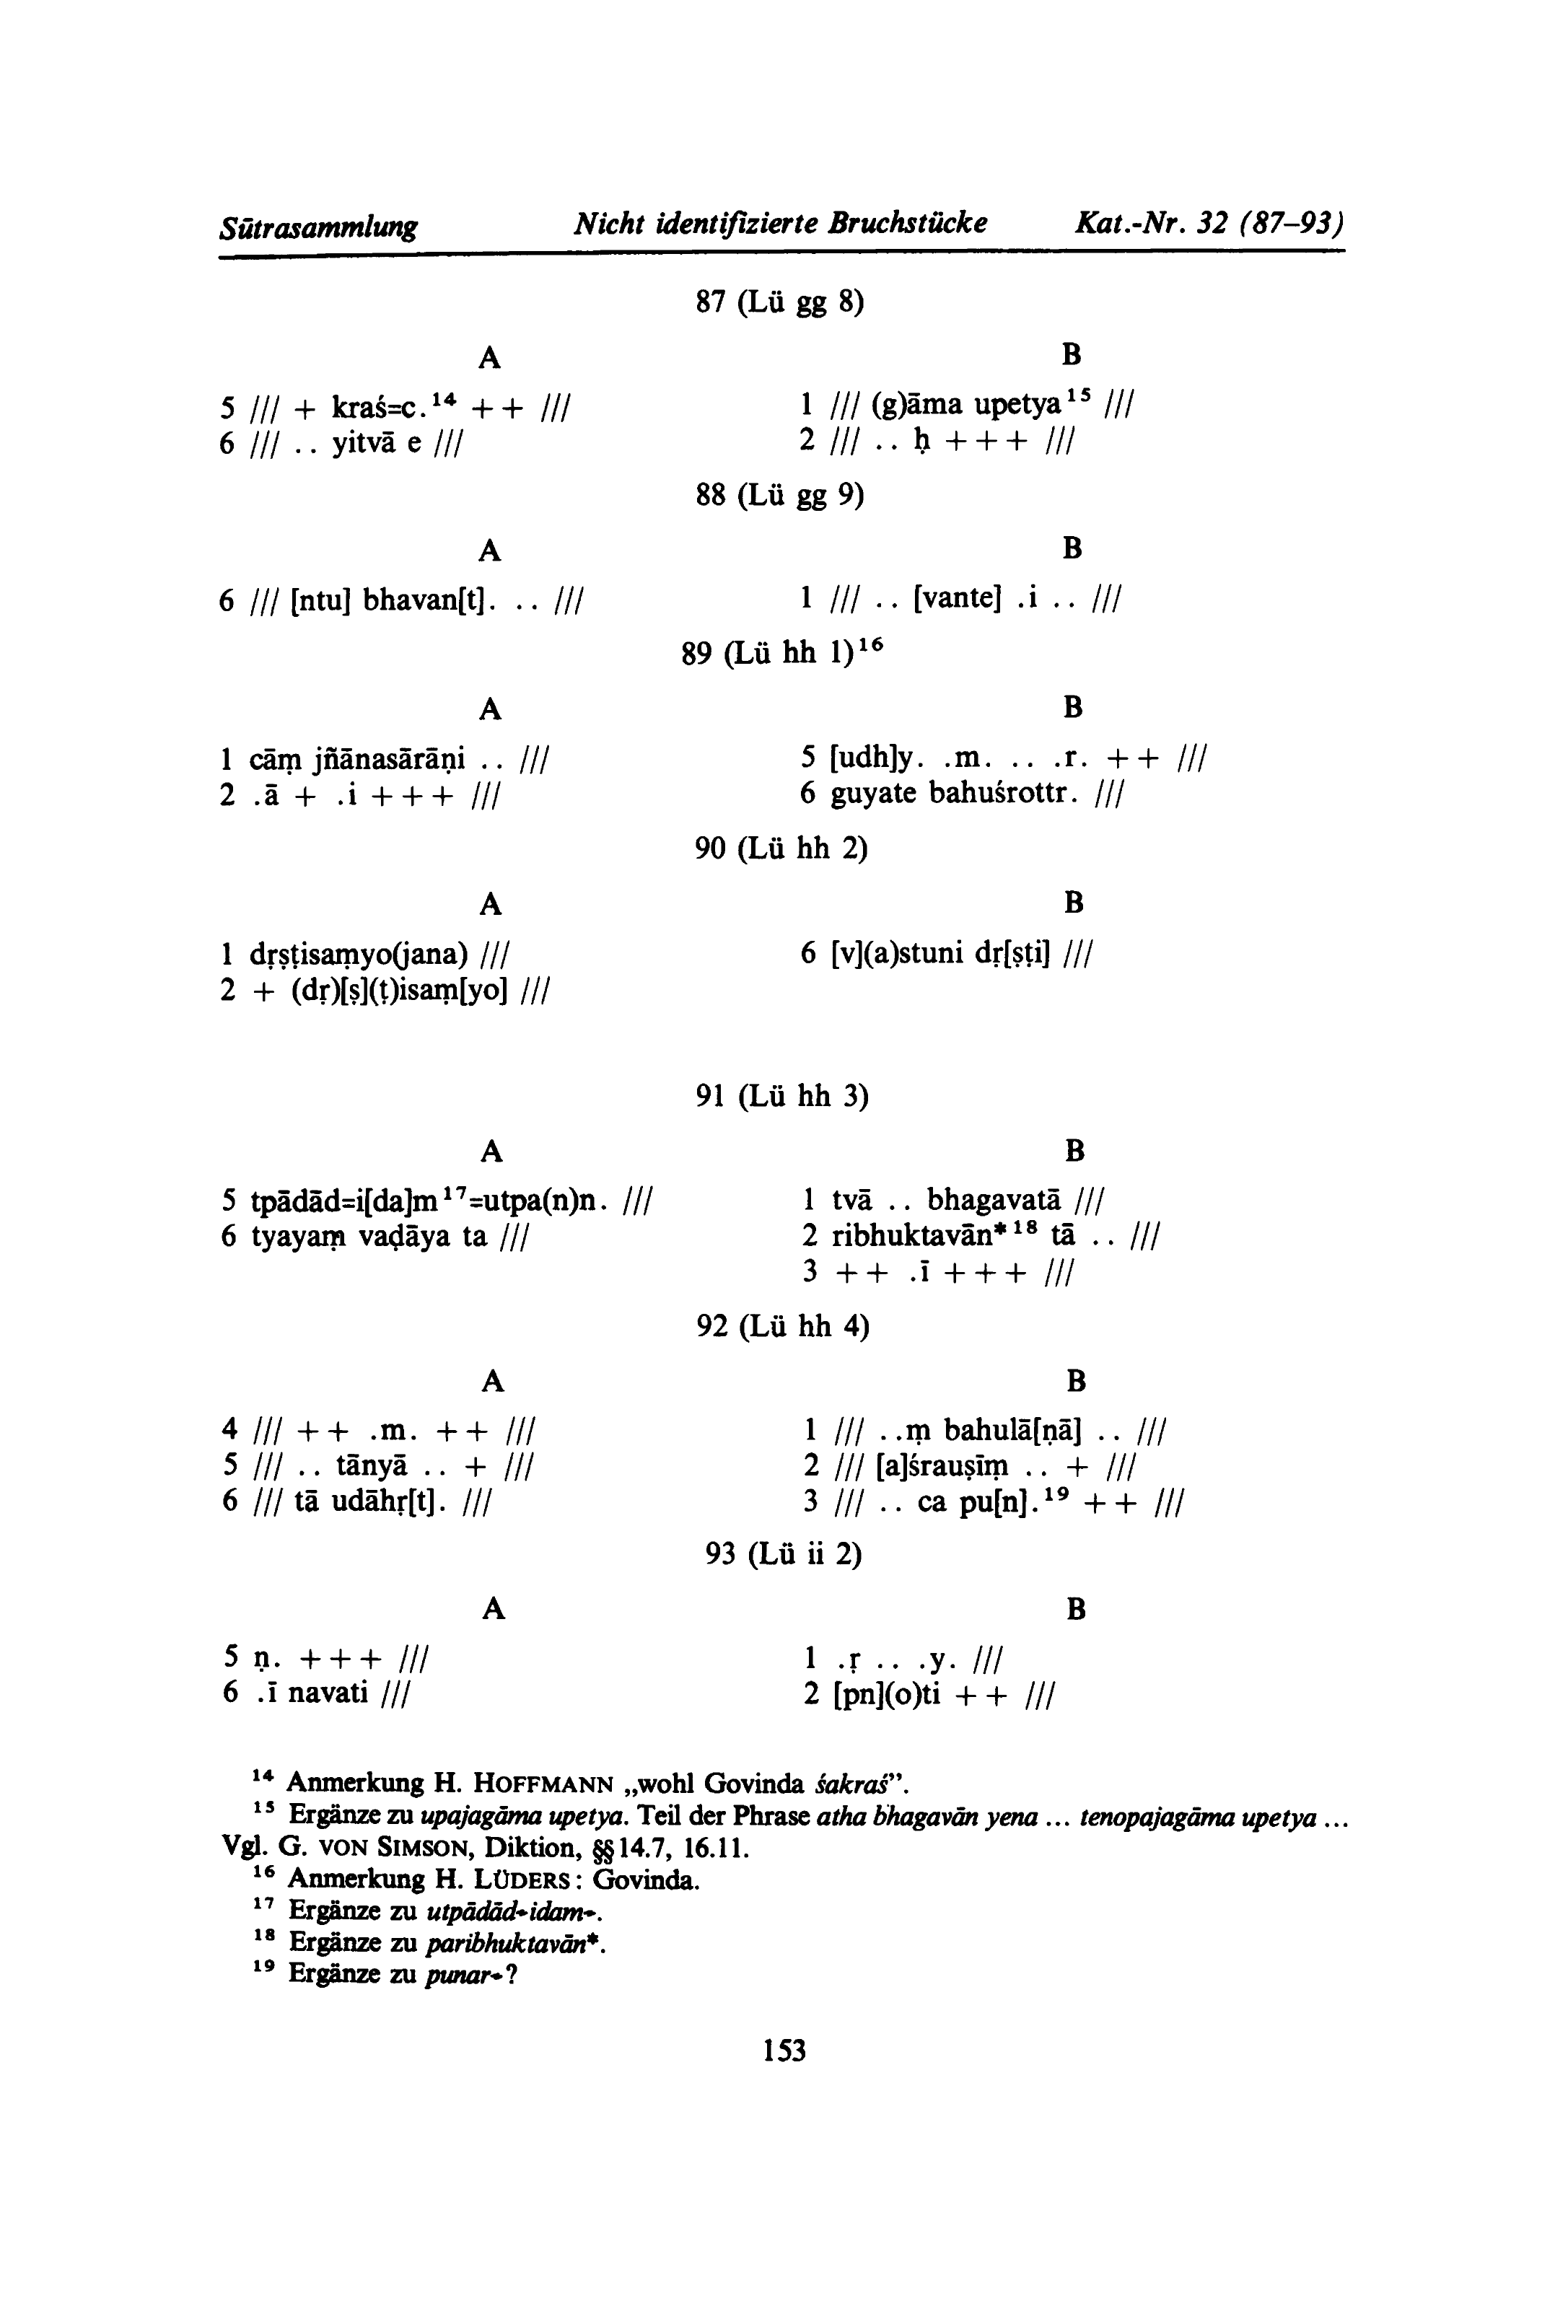 Sūtrasammlung Nicht identifizierte Bruchstücke Kat.-Nr. 32 (87–93)
87 (Lü gg 8)
A
5 /// + kraś=c.¹⁴ + + ///
6 /// .. yitvā e ///
B
1 /// (g)āma upetya¹⁵ ///
2 /// .. ḥ + + + ///
88 (Lü gg 9)
A
6 /// [ntu] bhavan[t]. .. ///
B
1 /// .. [vante] .i .. ///
89 (Lü hh 1)¹⁶
A
1 cāṃ jñānasārāṇi .. ///
2 .ā + .i + + + ///
B
5 [udh]y. .m. .. .r. + + ///
6 guyate bahuśrottr. ///
90 (Lü hh 2)
A
1 dṛṣṭisaṃyo(jana) ///
2 + (dṛ)[ṣ](ṭ)isaṃ[yo] ///
B
6 [v](a)stuni dṛ[ṣṭi] ///
91 (Lü hh 3)
A
5 tpādād=i[da]m¹⁷=utpa(n)n. ///
6 tyayaṃ vaḍāya ta ///
B
1 tvā .. bhagavatā ///
2 ribhuktavān*¹⁸ tā .. ///
3 + + .ī + + + ///
92 (Lü hh 4)
A
4 /// + + .m. + + ///
5 /// .. tānyā .. + ///
6 /// tā udāhṛ[t]. ///
B
1 /// ..ṃ bahulā[ṇā] .. ///
2 /// [a]śrauṣīṃ .. + ///
3 /// .. ca pu[n].¹⁹ + + ///
93 (Lü ii 2)
A
5 ṇ. + + + ///
6 .ī navati ///
B
1 .ṛ .. .y. ///
2 [pn](o)ti + + ///
¹⁴ Anmerkung H. HOFFMANN „wohl Govinda śakraś”.
¹⁵ Ergänze zu upajagāma upetya. Teil der Phrase atha bhagavān yena ... tenopajagāma upetya ...
Vgl. G. VON SIMSON, Diktion, §§ 14.7, 16.11.
¹⁶ Anmerkung H. LÜDERS: Govinda.
¹⁷ Ergänze zu utpādād=idam=.
¹⁸ Ergänze zu paribhuktavān*.
¹⁹ Ergänze zu punar=?
153